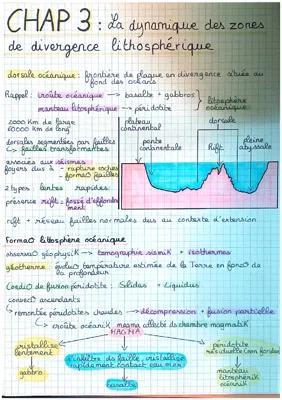 CHAP 3 : La dynamique des zones
de divergence lithosphérique
dorsale océanique : frontière de plaque en divergence située au
fond des océans
Rappel : croûte océanique → basalte + gabbros
manteau lithosphérique → péridotite
lithosphère
océanique
2000 km de large
60000 km de long
plateau
continental
dorsale
dorsales segmentées par failles
↳ failles transformantes
pente
continentale
Rift
plaine
abyssale
associés aux séismes
foyers dus à → rupture roches
formo° failles
2 types : lentes rapides
présence rift = fossé d'effondre
ment
rift + réseau failles normales dus au contexte d'extension
Formao lithosphère océanique
observao géophysik → tomographie sismik + isothermes
géotherme : évoluo température estimée de la Terre en foncto de
la profondeur
Conditio de fusion péridotite : Solidus + Liquidus
convecto ascendants
→ remontée péridotites chaudes → décompression + fusion partielle
→ croûte océanik magma affecté ds chambre magmatik
MAGMA
cristallise
lentement
gabbro
s'infiltre ds faille, cristallise
rapidement contact eau mer
basalte
péridotite
résiduelle (non fondue)
manteau
lithosphérik
océanik